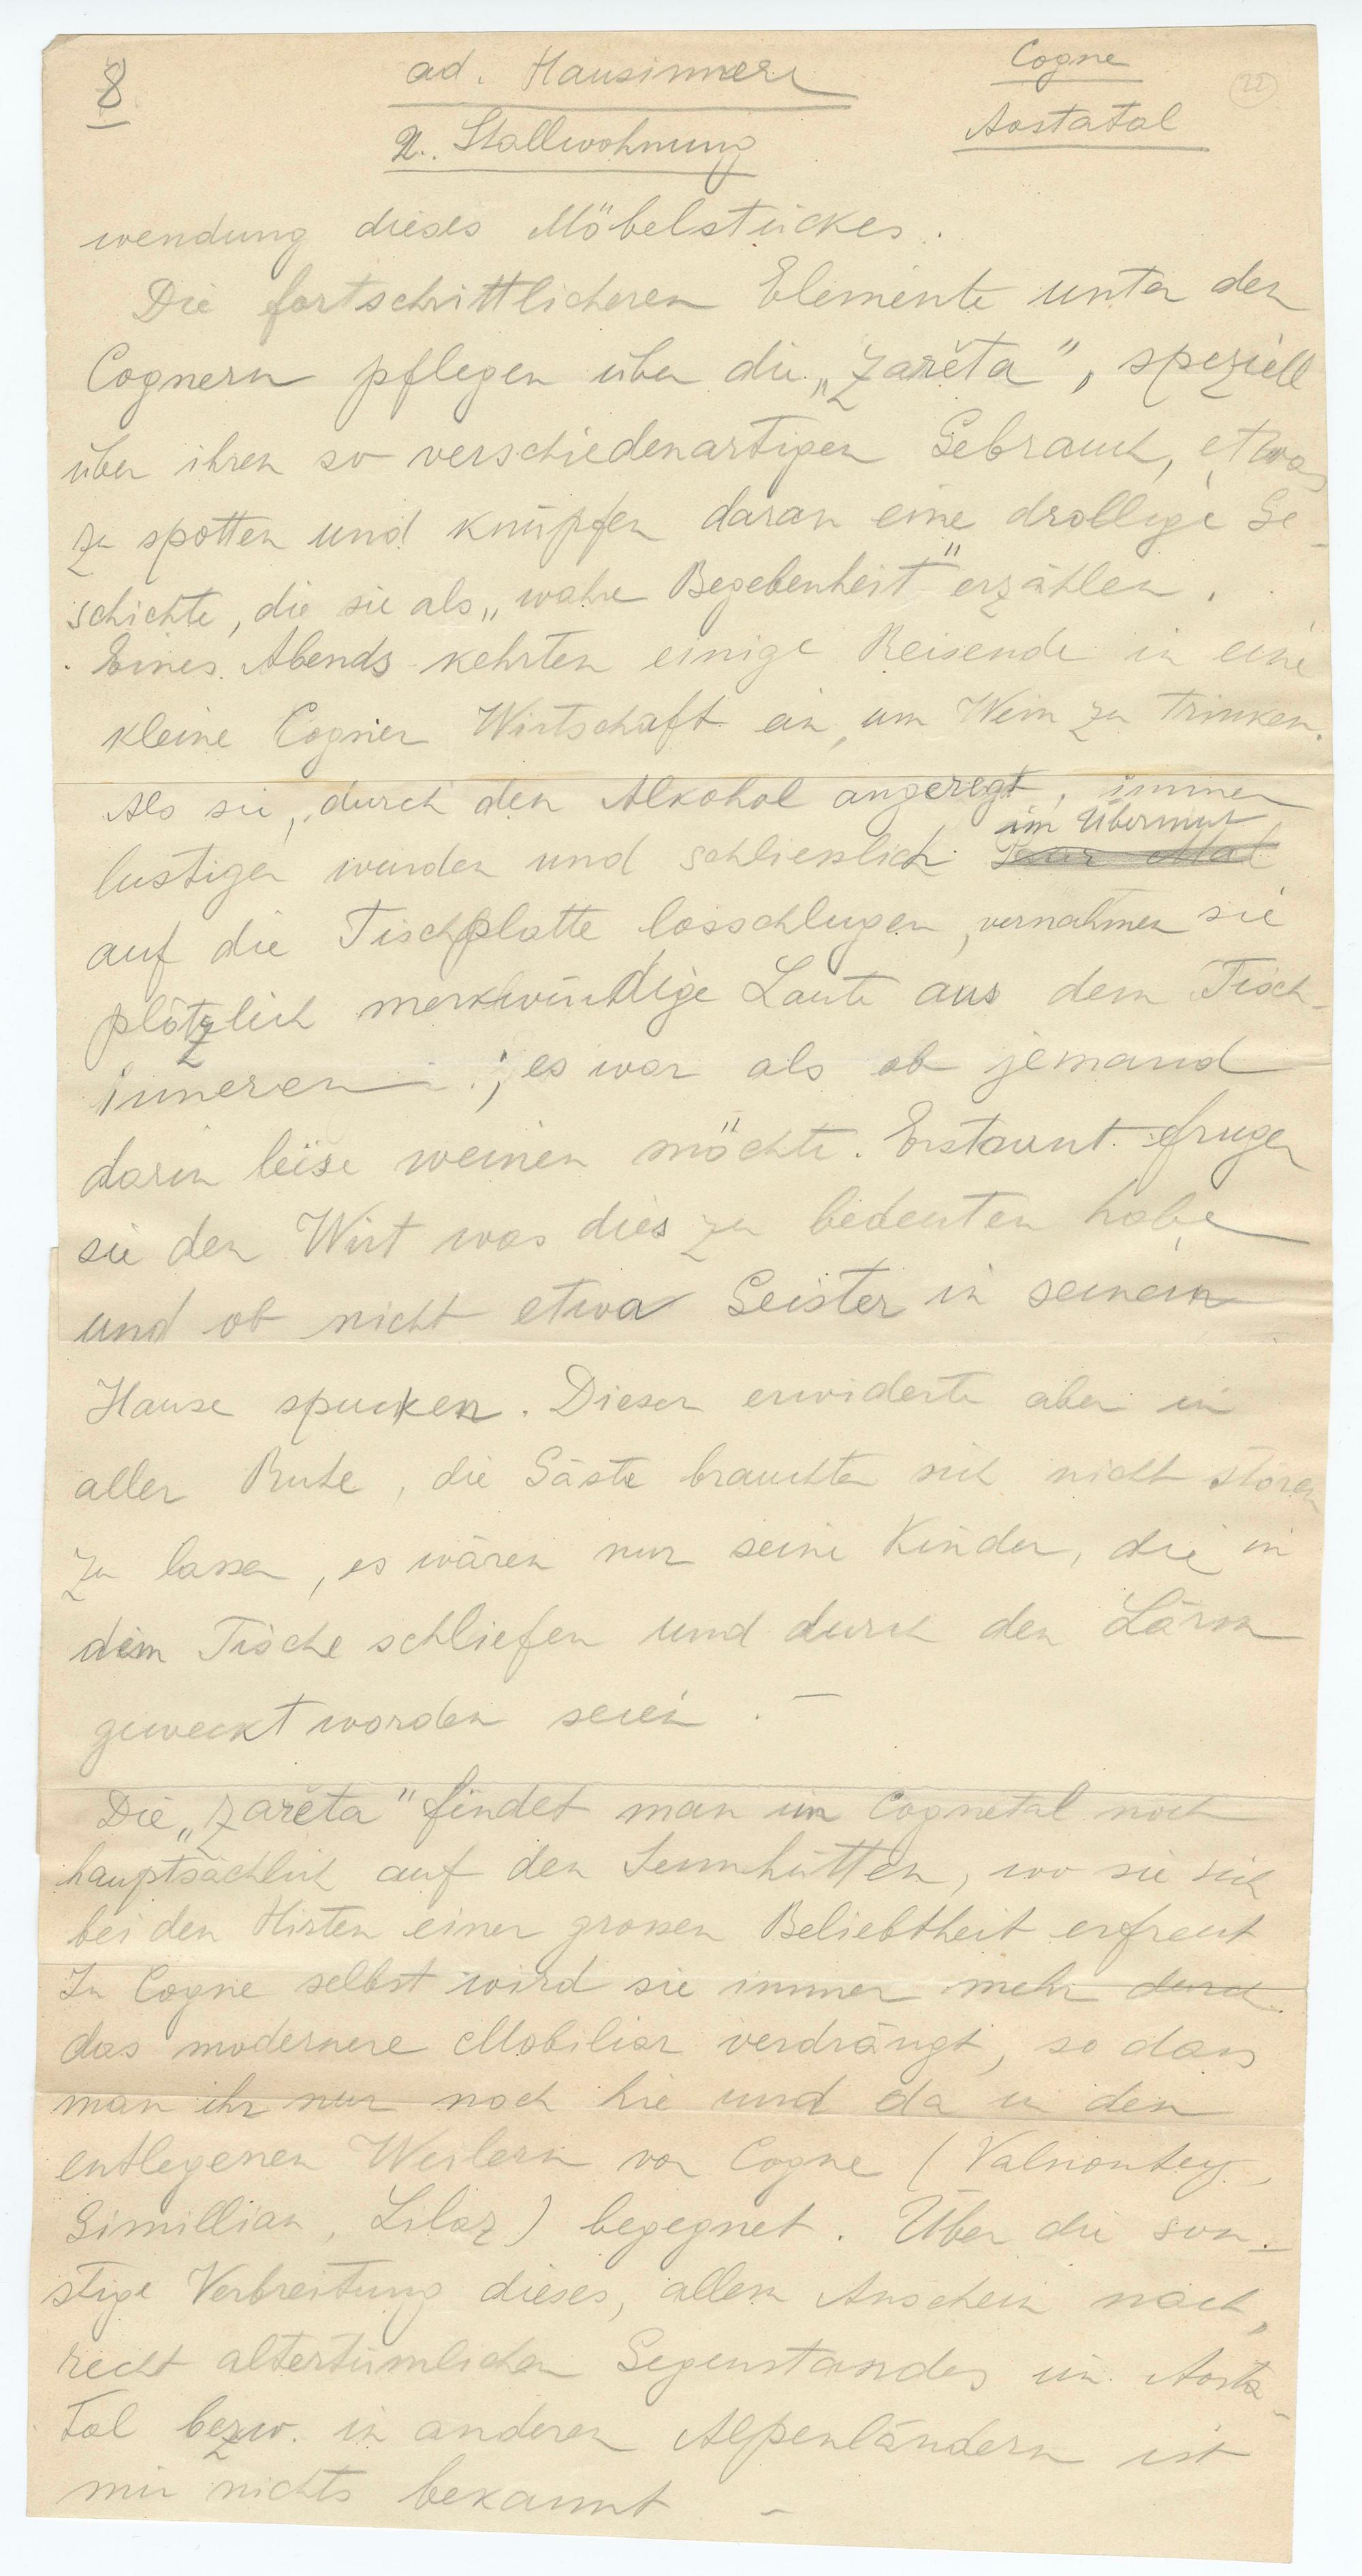 8
ad. Hausinnere
2. Stallwohnung
Cogne
Aostatal
22
wendung dieses Möbelstückes.
Die fortschrittlicheren Elemente unter den
Cognern pflegen über die „zarĕta", speziell
über ihren so verschiedenartigen Gebrauch, etwas
zu spotten und knüpfen daran eine drollige Ge-
schichte, die sie als „wahre Begebenheit" erzählen.
Eines Abends kehrten einige Reisende in eine
kleine Cogner Wirtschaft ein, um Wein zu trinken.
Als sie, durch den Alkohol angeregt, immer
im Übermut
lustiger wurden und schliesslich
auf die Tischplatte losschlugen, vernahmen sie
plötzlich merkwürdige Laute aus dem Tisch-
inneren; es war als ob jemand
darin leise weinen möchte. Erstaunt frugen
sie den Wirt was dies zu bedeuten habe
und ob nicht etwa Geister in seinem
Hause spucken. Dieser erwiderte aber in
aller Ruhe, die Gäste brauchten sich nicht stören
zu lassen, es wären nur seine Kinder, die in
dem Tische schliefen und durch den Lärm
geweckt worden seien. –
Die „zarĕta" findet man im Cognetal noch
hauptsächlich auf den Sennhütten, wo sie sich
bei den Hirten einer grossen Beliebtheit erfreut
In Cogne selbst wird sie immer mehr durch
das modernere Mobiliar verdrängt, so dass
man ihr nur noch hie und da in den
entlegenen Weilern von Cogne (Valnontey,
Gimillian, Lilaz) begegnet. Über die son-
stige Verbreitung dieses, allem Anschein nach,
recht altertümlichen Gegenstandes im Aosta-
tal bezw. in anderen Alpenländern ist
mir nichts bekannt –